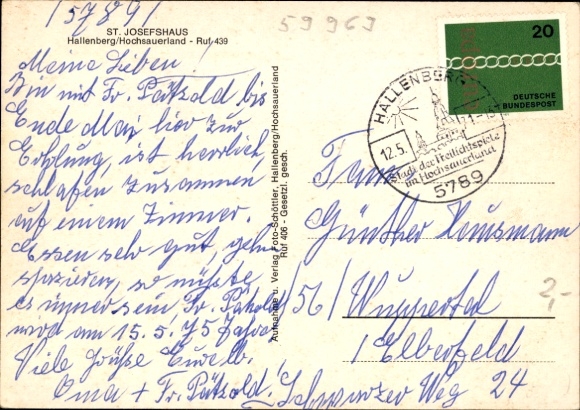 /5789/
59969
ST. JOSEFSHAUS
Hallenberg/Hochsauerland - Ruf 439
Meine Lieben!
Bin mit Fr. Pätzold bis
Ende Mai hier zur
Erholung, ist herrlich,
schlafen zusammen
auf einem Zimmer.
Essen sehr gut, gehn
spazieren, so müßte
es immer sein, Fr. Pätzold
wird am 15.5. 75 Jahre
Viele Grüße Eure lb.
Oma + Fr. Pätzold!
Aufnahme u. Verlag Foto-Schöttler, Hallenberg/Hochsauerland
Ruf 406 - Gesetzl. gesch.
20
DEUTSCHE
BUNDESPOST
HALLENBERG
12.5.
Stadt der Freilichtspiele
im Hochsauerland
5789
Günther
/56/ Wuppertal
/Elberfeld
Schwarzer Weg 24
2,-